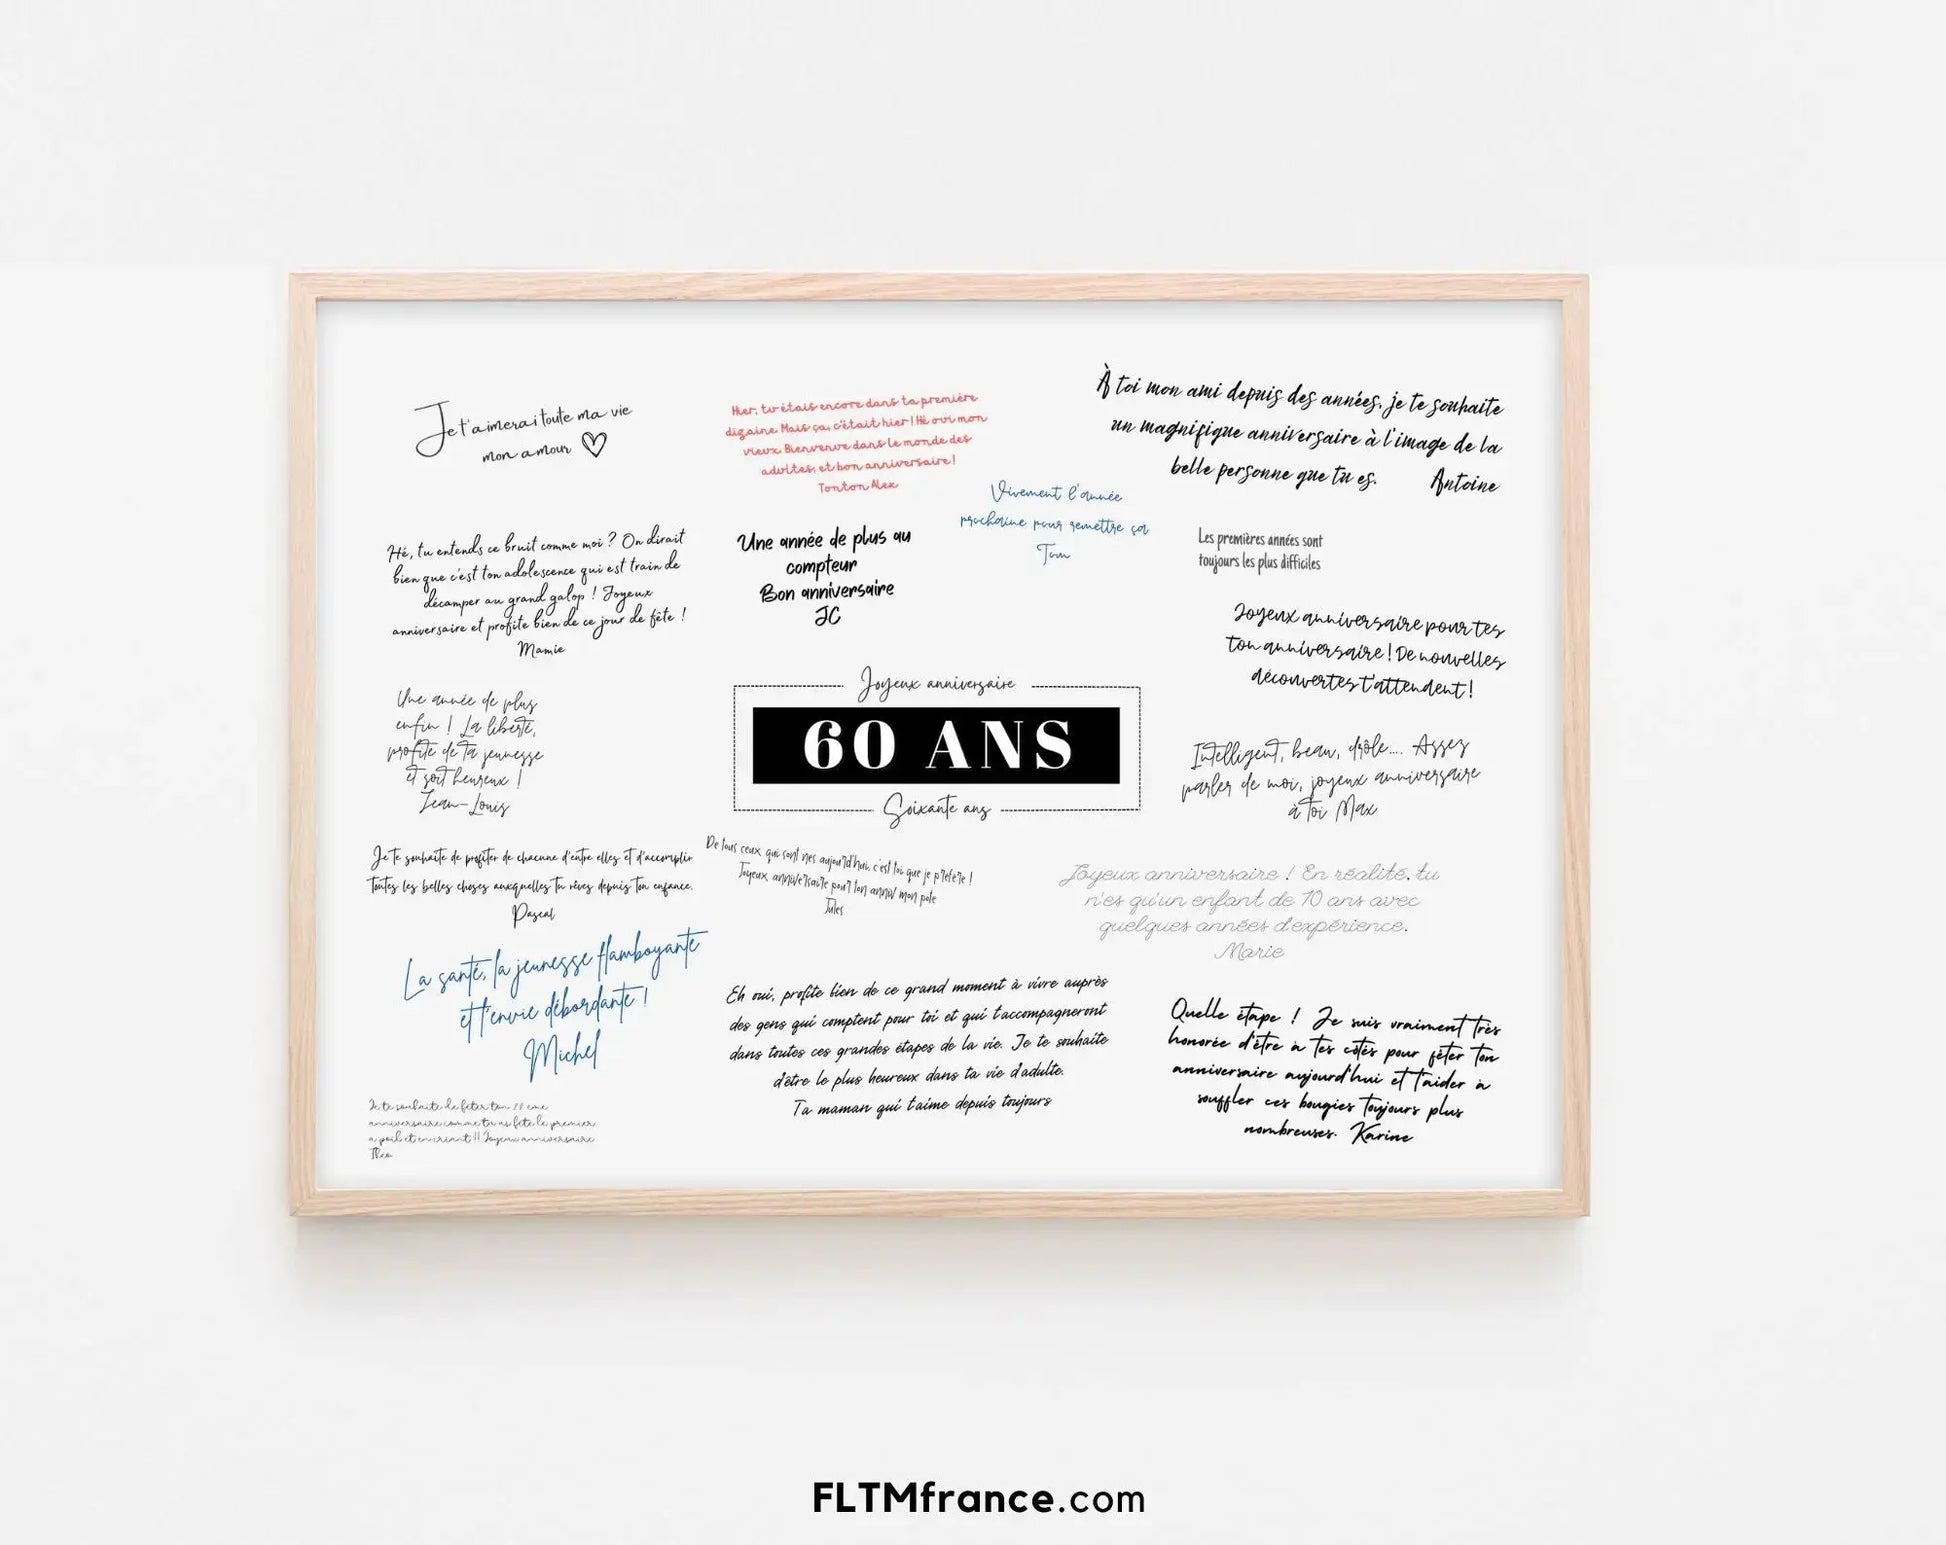 Je t'aimerai toute ma vie
mon amour
Hier, tu étais encore dans ta première
dizaine. Mais ça, c'était hier ! Hé oui mon
vieux. Bienvenue dans le monde des
adultes, et bon anniversaire !
Tonton Alex
À toi mon ami depuis des années, je te souhaite
un magnifique anniversaire à l'image de la
belle personne que tu es. Antoine
Vivement l'année
prochaine pour remettre ça
Tom
Hé, tu entends ce bruit comme moi ? On dirait
bien que c'est ton adolescence qui est train de
décamper au grand galop ! Joyeux
anniversaire et profite bien de ce jour de fête !
Mamie
Une année de plus au
compteur
Bon anniversaire
JC
Les premières années sont
toujours les plus difficiles
Joyeux anniversaire pour tes
ton anniversaire ! De nouvelles
découvertes t'attendent !
Une année de plus
enfin ! La liberté,
profite de ta jeunesse
et soit heureux !
Jean-Louis
Joyeux anniversaire
60 ANS
Soixante ans
Intelligent, beau, drôle.... Assez
parler de moi, joyeux anniversaire
à toi Max
Je te souhaite de profiter de chacune d'entre elles et d'accomplir
toutes les belles choses auxquelles tu rêves depuis ton enfance.
Pascal
De tous ceux qui sont nés aujourd'hui, c'est toi que je préfère !
Joyeux anniversaire pour ton anniv mon pote
Jules
Joyeux anniversaire ! En réalité, tu
n'es qu'un enfant de 10 ans avec
quelques années d'expérience.
Marie
La santé, la jeunesse flamboyante
et l'envie débordante !
Michel
Eh oui, profite bien de ce grand moment à vivre auprès
des gens qui comptent pour toi et qui t'accompagneront
dans toutes ces grandes étapes de la vie. Je te souhaite
d'être le plus heureux dans ta vie d'adulte.
Ta maman qui t'aime depuis toujours
Quelle étape ! Je suis vraiment très
honorée d'être à tes côtés pour fêter ton
anniversaire aujourd'hui et t'aider à
souffler ces bougies toujours plus
nombreuses. Karine
Je te souhaite de feter ton 20 eme
anniversaire comme tu as fete le premier
a poil et en criant !! Joyeux anniversaire
Theo
FLTMfrance.com